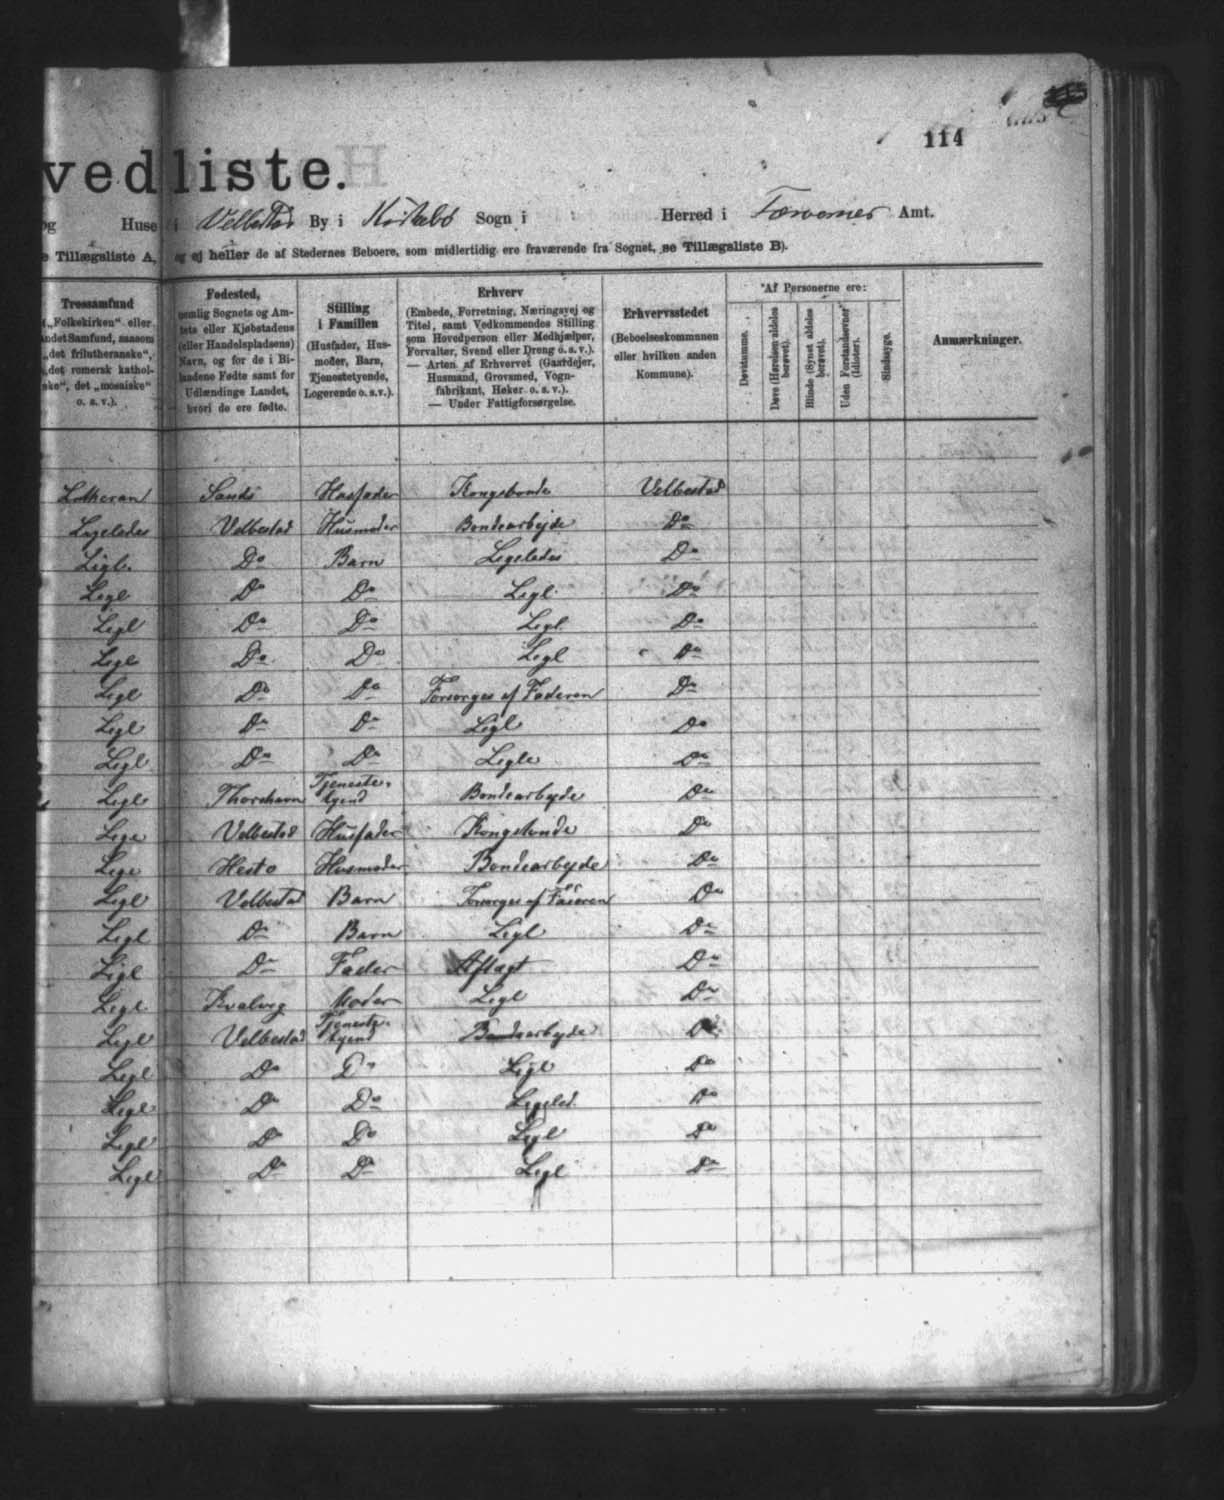 114
vedliste.
og Huse i Velbestad By i Kirkebø Sogn i Herred i Færøernes Amt.
e Tillægsliste A, og ej heller de af Stedernes Beboere, som midlertidig ere fraværende fra Sognet, se Tillægsliste B).
Trossamfund
(„Folkekirken“ eller
andet Samfund, saasom
„det frilutheranske“,
„det romersk kathol-
ske“, det „mosaiske“
o. s. v.).
Fødested,
nemlig Sognets og Am-
tets eller Kjøbstadens
(eller Handelspladsens)
Navn, og for de i Bi-
landene Fødte samt for
Udlændinge Landet,
hvori de ere fødte.
Stilling
i Familien
(Husfader, Hus-
moder, Barn,
Tjenestetyende,
Logerende o. s. v.).
Erhverv
(Embede, Forretning, Næringsvej og
Titel, samt Vedkommendes Stilling
som Hovedperson eller Medhjælper,
Forvalter, Svend eller Dreng o. s. v.).
— Arten af Erhvervet (Gaardejer,
Husmand, Grovsmed, Vogn-
fabrikant, Høker o. s. v.).
— Under Fattigforsørgelse.
Erhvervsstedet
(Beboelseskommunen
eller hvilken anden
Kommune).
Af Personerne ere:
Døvstumme.
Døve (Hørelsen aldeles
berøvet).
Blinde (Synet aldeles
berøvet).
Uden Forstandsevner
(Idioter).
Sindssyge.
Anmærkninger.
Lutheran Sandø Husfader Kongsbonde Velbestad
Ligeledes Velbestad Husmoder Bondearbejde Do
Ligl. Do Barn Ligeledes Do
Ligl Do Do Ligl Do
Ligl Do Do Ligl Do
Ligl Do Do Ligl Do
Ligl Do Do Forsørges af Faderen Do
Ligl Do Do Ligl Do
Ligl Do Do Ligle Do
Ligl Thorshavn Tjeneste-
tyend Bondearbejde Do
Lige Velbestad Husfader Kongsbonde Do
Lige Hestø Husmoder Bondearbejde Do
Ligl Velbestad Barn Forsørges af Faderen Do
Ligl Do Barn Ligl Do
Ligl Do Fader Aftægt Do
Ligl Kvalvig Moder Ligl Do
Ligl Velbestad Tjeneste-
tyend Bondearbejde Do
Ligl Do Do Ligl Do
Ligl Do Do Ligeled. Do
Ligl Do Do Ligl Do
Ligl Do Do Ligl Do